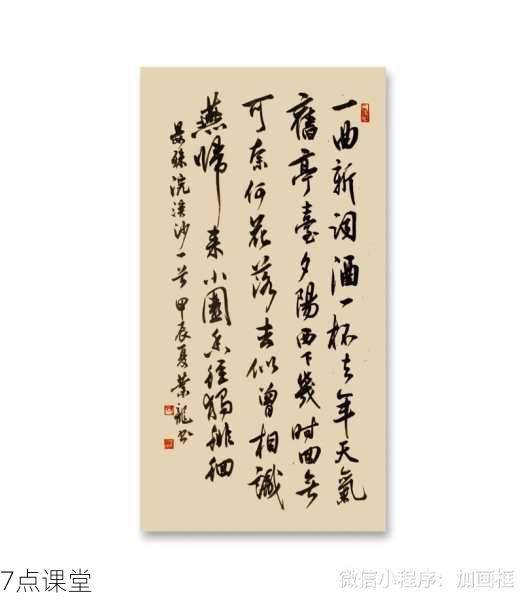 一曲新词酒一杯去年天氣
舊亭臺夕陽西下幾时回無
可奈何花落去似曾相識
燕归来小園香徑獨徘徊
晏殊浣溪沙一首甲辰夏業龍书
7点课堂
微信小程序：加画框